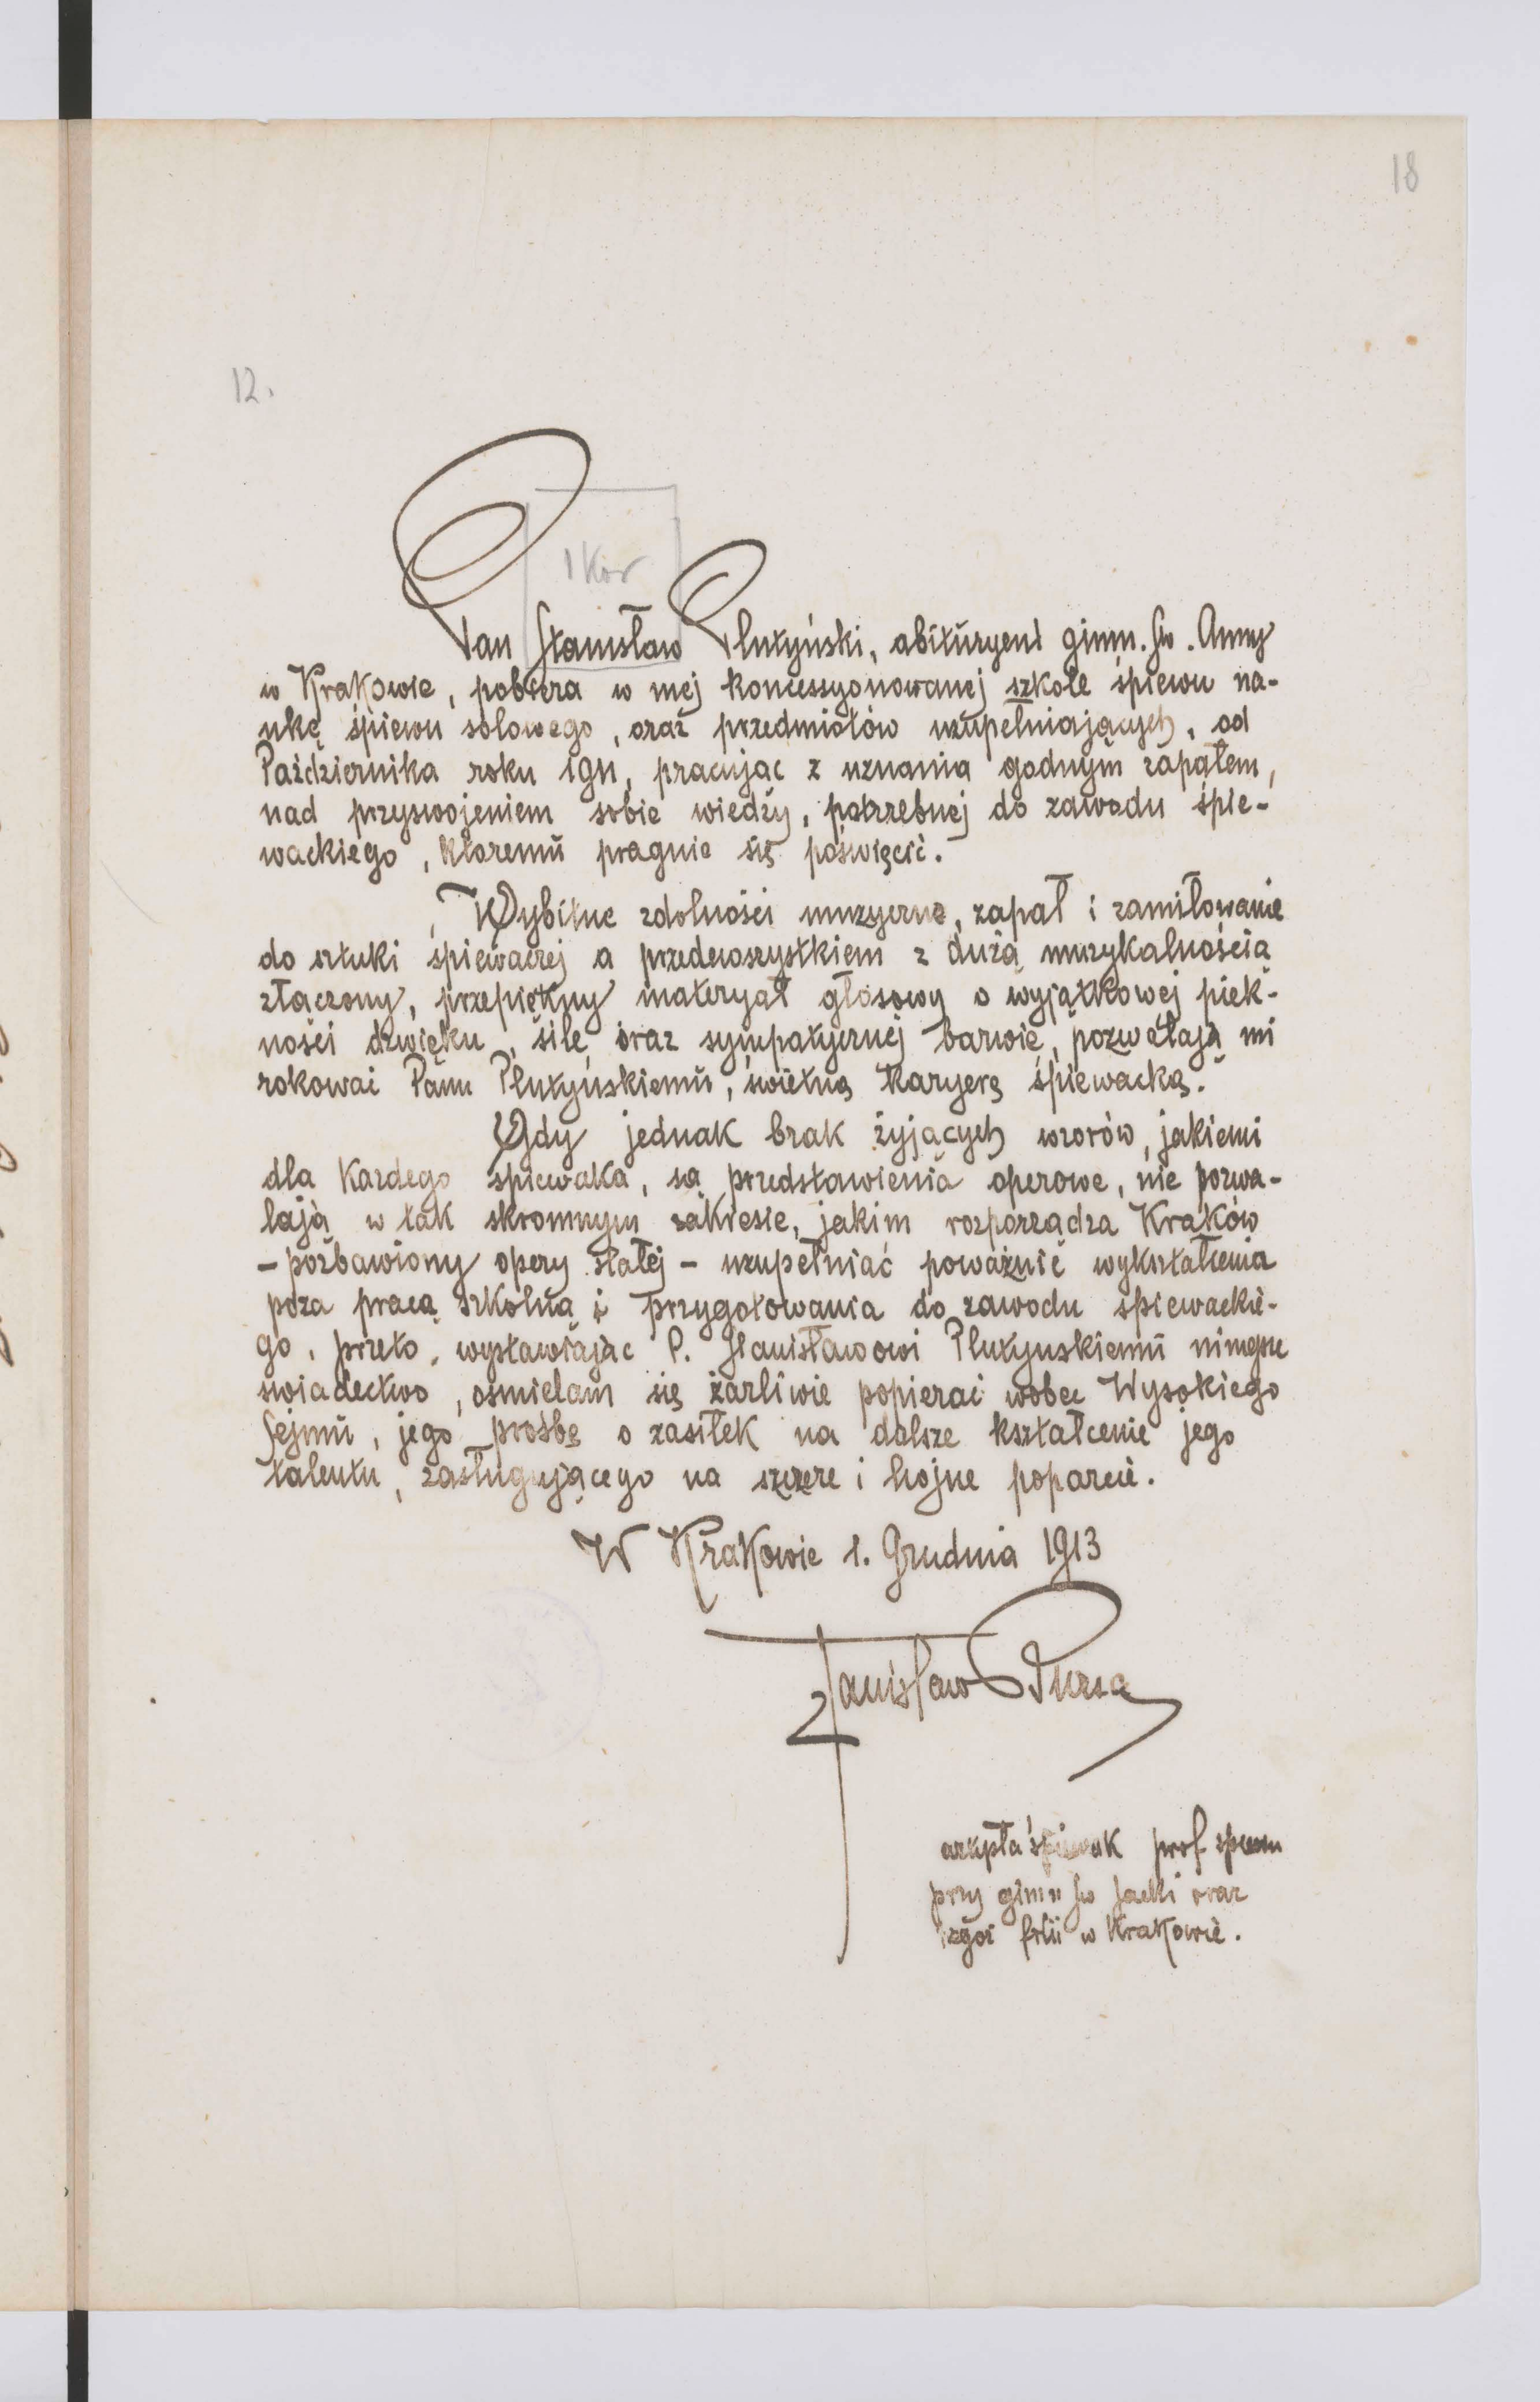 18
12.
1 Kor
Pan Stanisław Plutyński, abituryent gimn. Św. Anny
w Krakowie, pobiera w mej koncessyonowanej szkole śpiewu na-
ukę śpiewu solowego, oraz przedmiotów uzupełniających, od
Października roku 1911, pracując z uznania godnym zapałem,
nad przyswojeniem sobie wiedzy, potrzebnej do zawodu śpie-
wackiego, któremu pragnie się poświęcić.
Wybitne zdolności muzyczne, zapał i zamiłowanie
do sztuki śpiewaczej a przedewszystkiem z dużą muzykalnością
złączony, przepiękny materyał głosowy o wyjątkowej pięk-
ności dzwięku, sile, oraz sympatycznej barwie, pozwalają mi
rokować Panu Plutyńskiemu, świetną karyerę śpiewacką.
Gdy jednak brak żyjących wzorów, jakiemi
dla każdego śpiewaka, są przedstawienia operowe, nie pozwa-
lają w tak skromnym zakresie, jakim rozporządza Kraków
- pozbawiony opery stałej - uzupełniać poważnie wykształcenia
poza pracą szkolną i przygotowania do zawodu śpiewackie-
go, przeto, wystawiając P. Stanisławowi Plutyńskiemu niniejsze
świadectwo, ośmielam się żarliwie popierać wobec Wysokiego
Sejmu, jego prośbę o zasiłek na dalsze kształcenie jego
talentu, zasługującego na szczere i hojne poparcie.
W Krakowie 1. Grudnia 1913
Stanisław Bursa
śpiewak prof śpiewu
przy gimn Św Jacki oraz
filii w Krakowie.